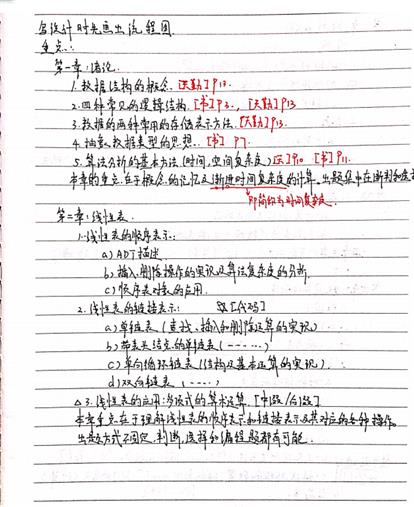 写设计时先画出流程图
重点:
第一章:绪论.
1.数据结构的概念.[天勤]P13.
2.四种常见的逻辑结构.[书]P3.,[天勤]P13
3.数据的两种常用的存储表示方法.[天勤]P13.
4.抽象数据类型的思想.[书]P7.
5.算法分析的基本方法(时间,空间复杂度)[天]P10 [书]P11.
本章的重点在于概念的记忆及渐进时间复杂度的计算。出题集中在断判和选
即简约的时间复杂度.
第二章:线性表.
1.线性表的顺序表示:
a)ADT描述
b)插入、删除操作的实现及算法复杂度的分析.
c)顺序表对表的应用.
2.线性表的链接表示: [代码]
a)单链表(查找、插入和删除运算的实现)
b)带表头结点的单链表(······)
c)单向循环链表(结构及基本运算的实现).
d)双向链表(····)
△3.线性表的应用:多项式的算术运算.
本章重点在于理解线性表的顺序表示和链接表示及其对应的各种操作。
出题方式不固定.判断,选择和编程题都有可能.